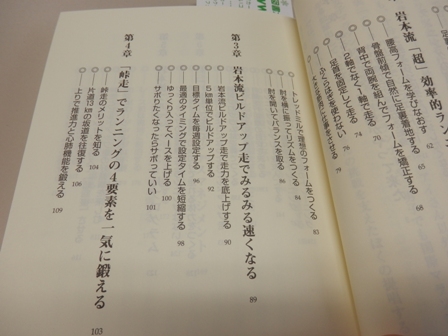 岩本流「超」効率的ラン
腰高フォームを学びなおす 65
骨盤前傾で自然に足裏着地する 68
背中で両腕を組んでフォームを矯正する 70
2軸でなく1軸で走る 74
足首を固定して走る
トレッドミルで理想のフォームをつくる 81
肘を横に振ってリズムをつくる 84
肘を開いてバランスを取る 86
第3章 岩本流ビルドアップ走でみるみる速くなる 89
岩本流ビルドアップ走で走力を底上げする 90
5km単位でビルドアップする 92
目標タイムを毎週設定する 96
最適のタイミングで設定タイムを短縮する 98
ゆっくり入って、ペースを上げる 100
サボりたくなったらサボっていい 101
第4章 「峠走」でランニングの4要素を一気に鍛える 103
峠走のメリットを知る 104
片道13kmの坂道を往復する 106
上りで推進力と心肺機能を鍛える 109